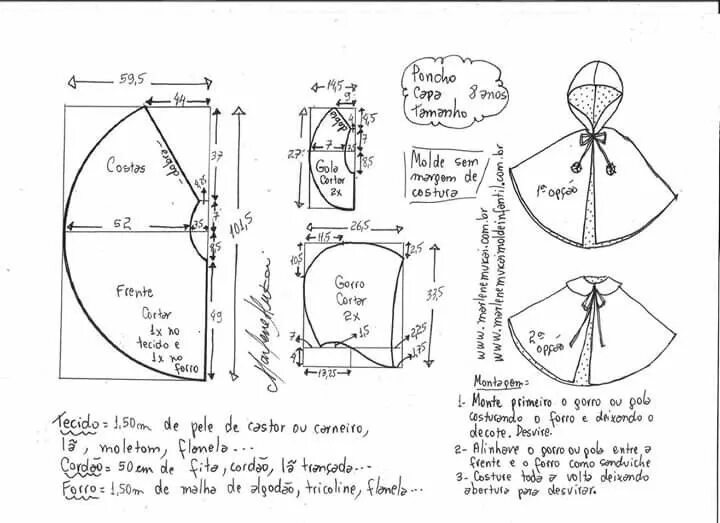 59,5
44
Costas
dobra
37
2,25
7
3,5
8,5
52
101,5
Frente
Cortar
1x no
tecido e
1x no
forro
49
14,5
9
dobra
4,5
7
7
3,5
8,5
27
Gola
Cortar
2x
Poncho
Capa 8 anos
Tamanho
Molde sem
margem de
costura
26,5
11,5
10,5
2,5
Gorro
Cortar
2x
33,5
7
1,5
2,25
4
1,75
13,25
Marlene Mukai
www.marlenemukai.com.br
www.marlenemukaimoldeinfantil.com.br
1ª opção
2ª opção
Tecido = 1,50m de pele de castor ou carneiro,
lã, moletom, flanela...
Cordão = 50cm de fita, cordão, lã trançada...
Forro = 1,50m de malha de algodão, tricoline, flanela...
Montagem:
1- Monte primeiro o gorro ou gola
costurando o forro e deixando o
decote. Desvire.
2- Alinhave o gorro ou gola entre a
frente e o forro como sanduiche
3- Costure toda a volta deixando
abertura para desvirar.